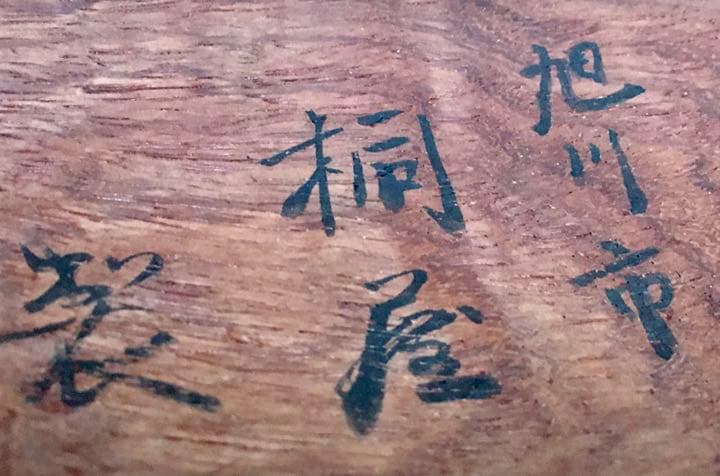 旭川市
桐屋
製